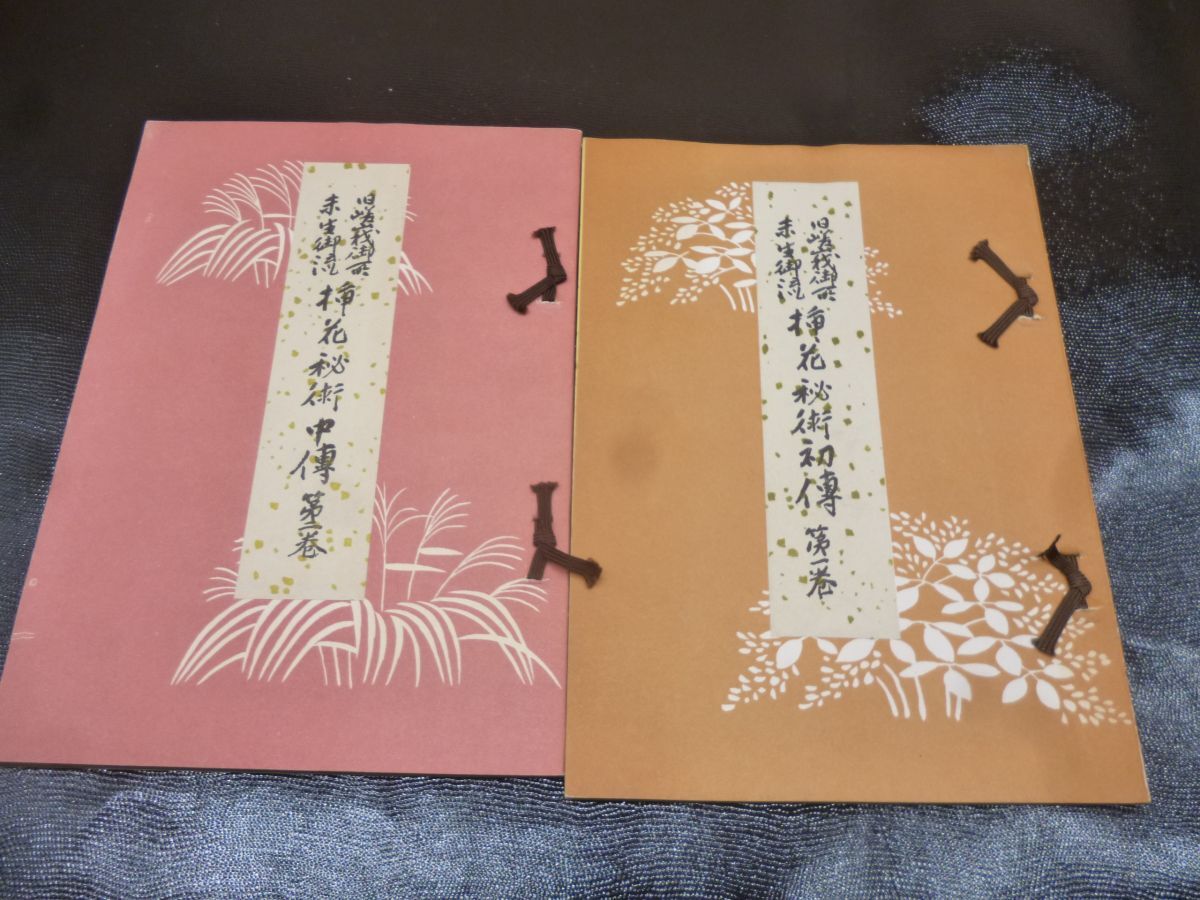 旧嵯峨御所
未生御流
挿花秘術中傳 第一巻
旧嵯峨御所
未生御流
挿花秘術初傳 第一巻